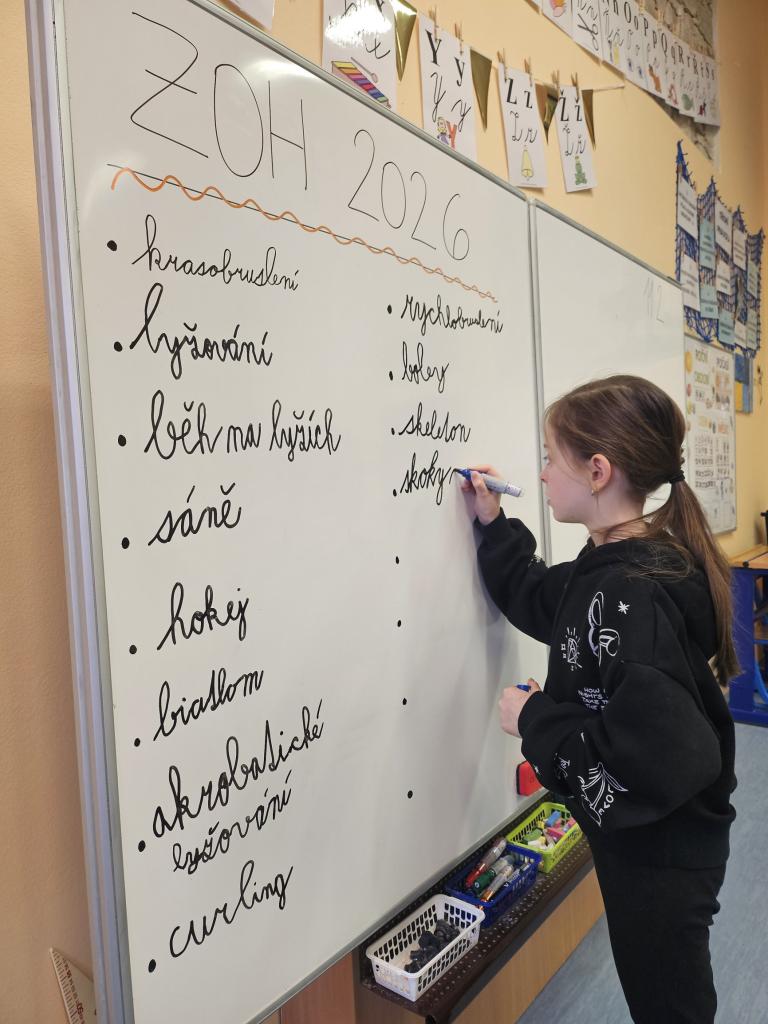 ZOH 2026
• krasobruslení
• lyžování
• běh na lyžích
• sáně
• hokej
• biatlom
• akrobatické
lyžování
• curling
• rychlobruslení
• boley
• skeleton
• skoky
•
•
•
•
Y y
Y y
Z z
Z z
Ž ž
Ž ž
LOVE